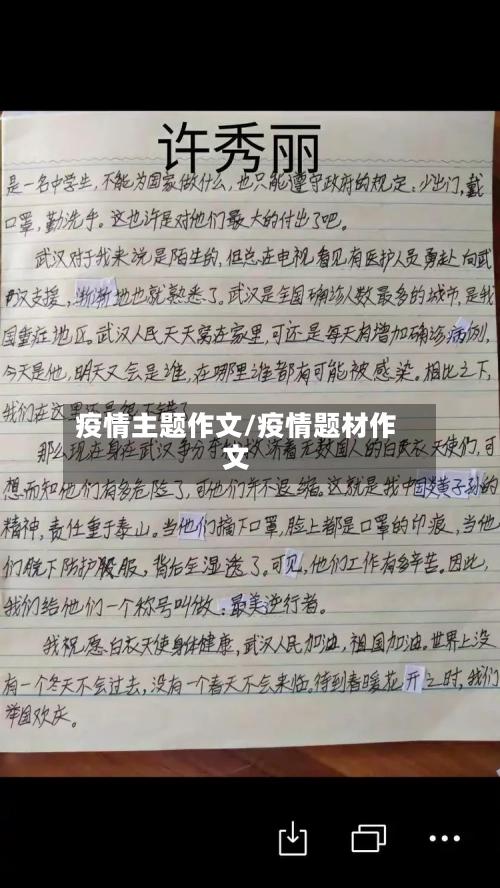 许秀丽
是一名中学生，不能为国家做什么，也只能遵守政府的规定：少出门，戴
口罩，勤洗手。这也许是对他们最大的付出了吧。
武汉对于我来说是陌生的，但总在电视看见有医护人员勇赴向武
汉支援，渐渐地也就熟悉了。武汉是全国确诊人数最多的城市，是我
国重症地区。武汉人民天天窝在家里，可还是每天有增加确诊病例，
今天是他，明天又会是谁，在哪里谁都有可能被感染。相比之下，
我们在这里还是很不错了
疫情主题作文/疫情题材作
文
那么现在身在武汉争分夺秒救济着无数国人的白衣天使们，可
想而知他们有多危险了，可他们并不退缩。这就是我中国炎黄子孙的
精神，责任重于泰山。当他们摘下口罩，脸上都是口罩的印痕，当他
们脱下防护服，背后全湿透了。可见，他们工作有多辛苦。因此，
我们给他们一个称号叫做：最美逆行者。
我祝愿白衣天使身体健康，武汉人民加油，祖国加油。世界上没
有一个冬天不会过去，没有一个春天不会来临。待到春暖花开之时，我们
举国欢庆。